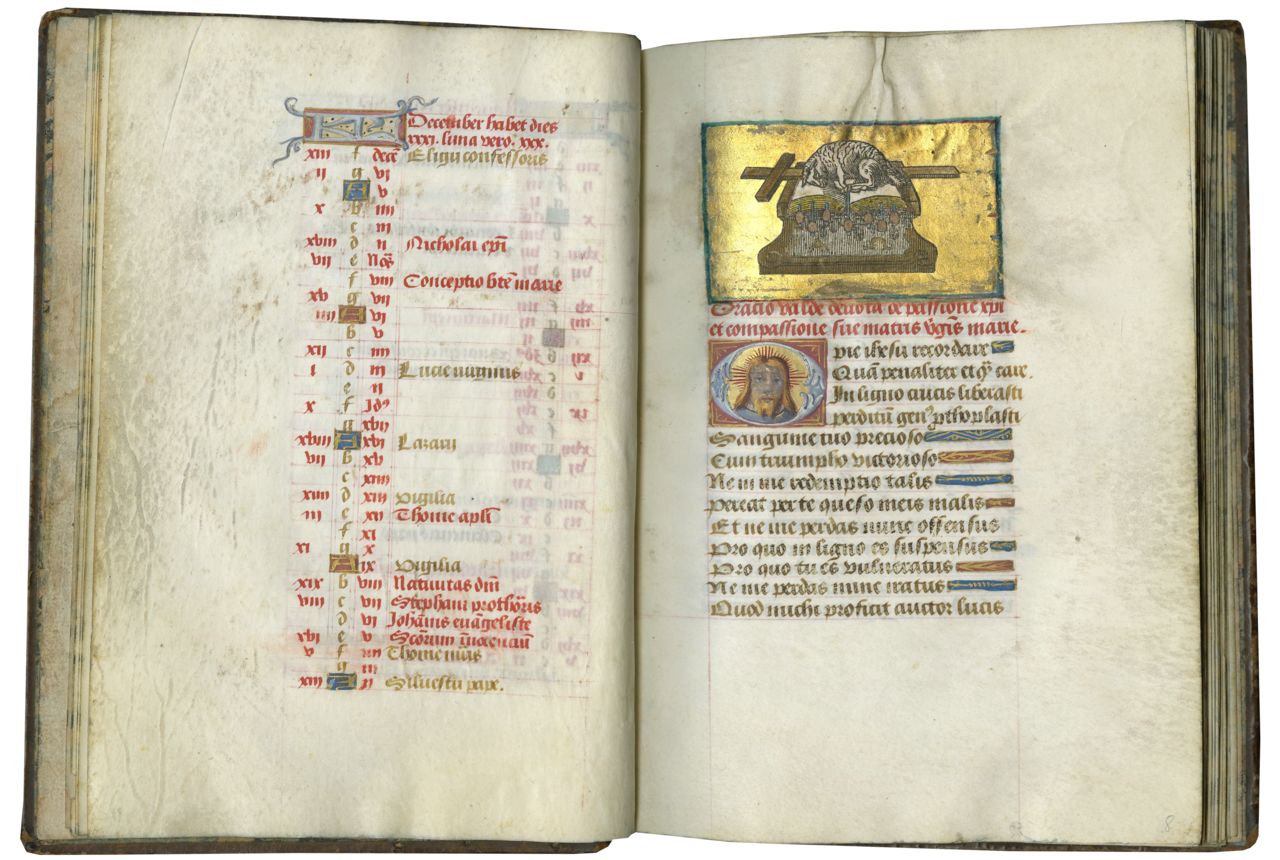 KL December habet dies
xxxi. luna vero. xxx.
xiii f dece Eligii confessoris
ii g vi
A v
x b iiii
c iii
xviii d ii Nicholai epi
vii e Nos
f viii Conceptio bte marie
xv g vii
iiii A vi
b v
xii c iiii
i d iii Lucie virginis
e ii
x f Id9
g xix
xviii A xvi Lazari
vii b xv
c xiiii
xiiii d xiii Vigilia
iii e xii Thome apli
f xi
xi g x
A ix Vigilia
xix b viii Nativitas dni
viii c vii Stephani prothoris
d vi Johannis evangeliste
xvi e v Scorum innocencium
v f iiii Thome
g iii
xiii A ii Silvestri pape.
Oracio valde devota de passione xpi
et compassione sue matris virgis marie.
O pie ihesu recordare
Qua penaliter et care.
In ligno crucis liberasti
perditu gen9 pthoplasti
Sanguine tuo precioso
Cum triumpho victorioso
Ne in me redemptio talis
Pereat per te queso meis malis
Et ne me perdas nunc offensus
Pro quo in ligno es suspensus
Pro quo tu es vulneratus
Ne me perdas nunc iratus
Quod michi proficit auctor lucis
8